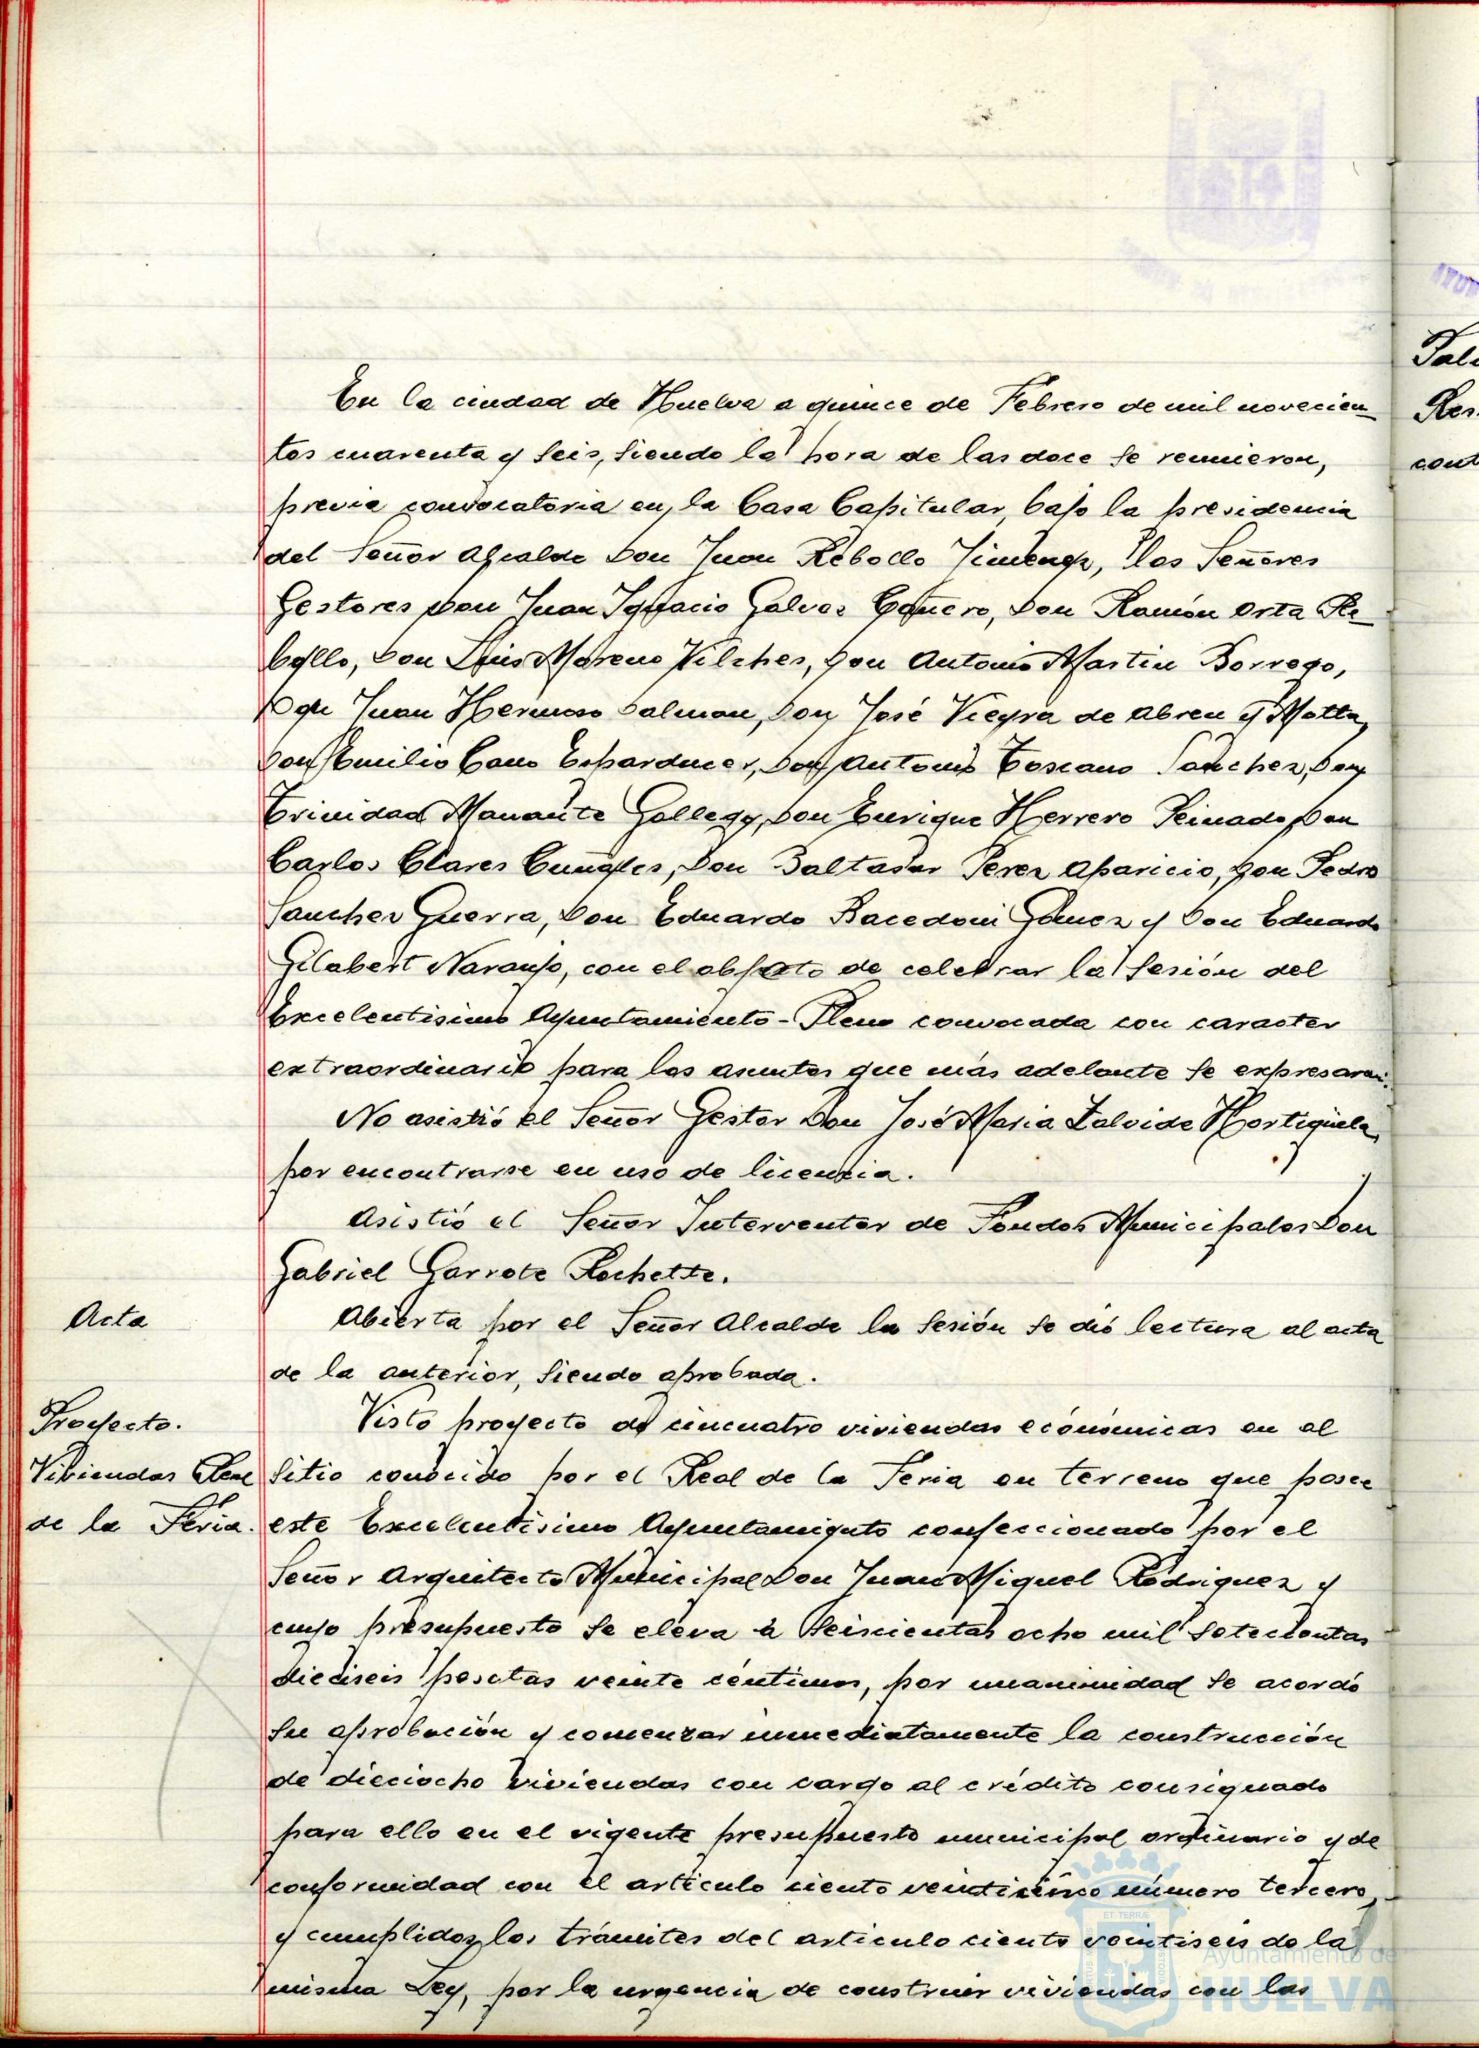 En la ciudad de Huelva a quince de Febrero de mil novecien-
tos cuarenta y seis, siendo la hora de las doce se reunieron,
previa convocatoria en la Casa Capitular, bajo la presidencia
del Señor Alcalde Don Juan Rebollo Jimenez, los Señores
Gestores Don Juan Ignacio Galvez Cañero, Don Ramón Orta Re-
bollo, Don Luis Moreno Vilches, Don Antonio Martin Borrego,
Don Juan Hermoso Dalmau, Don José Vieyra de Abreu y Motta,
Don Emilio Cano Don Antonio Toscano Sanchez, Don
Trinidad Gallego, Don Enrique Herrero Peinado, Don
Carlos Clares Don Baltasar Perez Aparicio, Don Pedro
Sanchez Guerra, Don Eduardo Bacedoni Gómez y Don Eduardo
Gilabert Naranjo, con el objeto de celebrar la sesión del
Excelentisimo Ayuntamiento-Pleno convocada con caracter
extraordinario para los asuntos que más adelante se expresaran.
No asistió el Señor Gestor Don José Maria Zalvide Hortigüela,
por encontrarse en uso de licencia.
Asistió el Señor Interventor de Fondos Municipales Don
Gabriel Garrote Rochette.
Acta
Abierta por el Señor Alcalde la sesión se dió lectura al acta
de la anterior, siendo aprobada.
Proyecto.
Viviendas Real
de la Feria.
Visto proyecto de cincuatro viviendas económicas en el
sitio conocido por el Real de la Feria en terreno que posee
este Excelentisimo Ayuntamiento confeccionado por el
Señor Arquitecto Municipal Don Juan Miguel Rodriguez y
cuyo presupuesto se eleva a seiscientas ocho mil setecientas
dieciseis pesetas veinte céntimos, por unanimidad se acordó
su aprobación y comenzar inmediatamente la construcción
de dieciocho viviendas con cargo al crédito consignado
para ello en el vigente presupuesto municipal ordinario y de
conformidad con el articulo ciento veinticinco número tercero,
y cumplidos los trámites del articulo ciento veintiseis de la
misma Ley, por la urgencia de construir viviendas con las
Ayuntamiento de
HUELVA